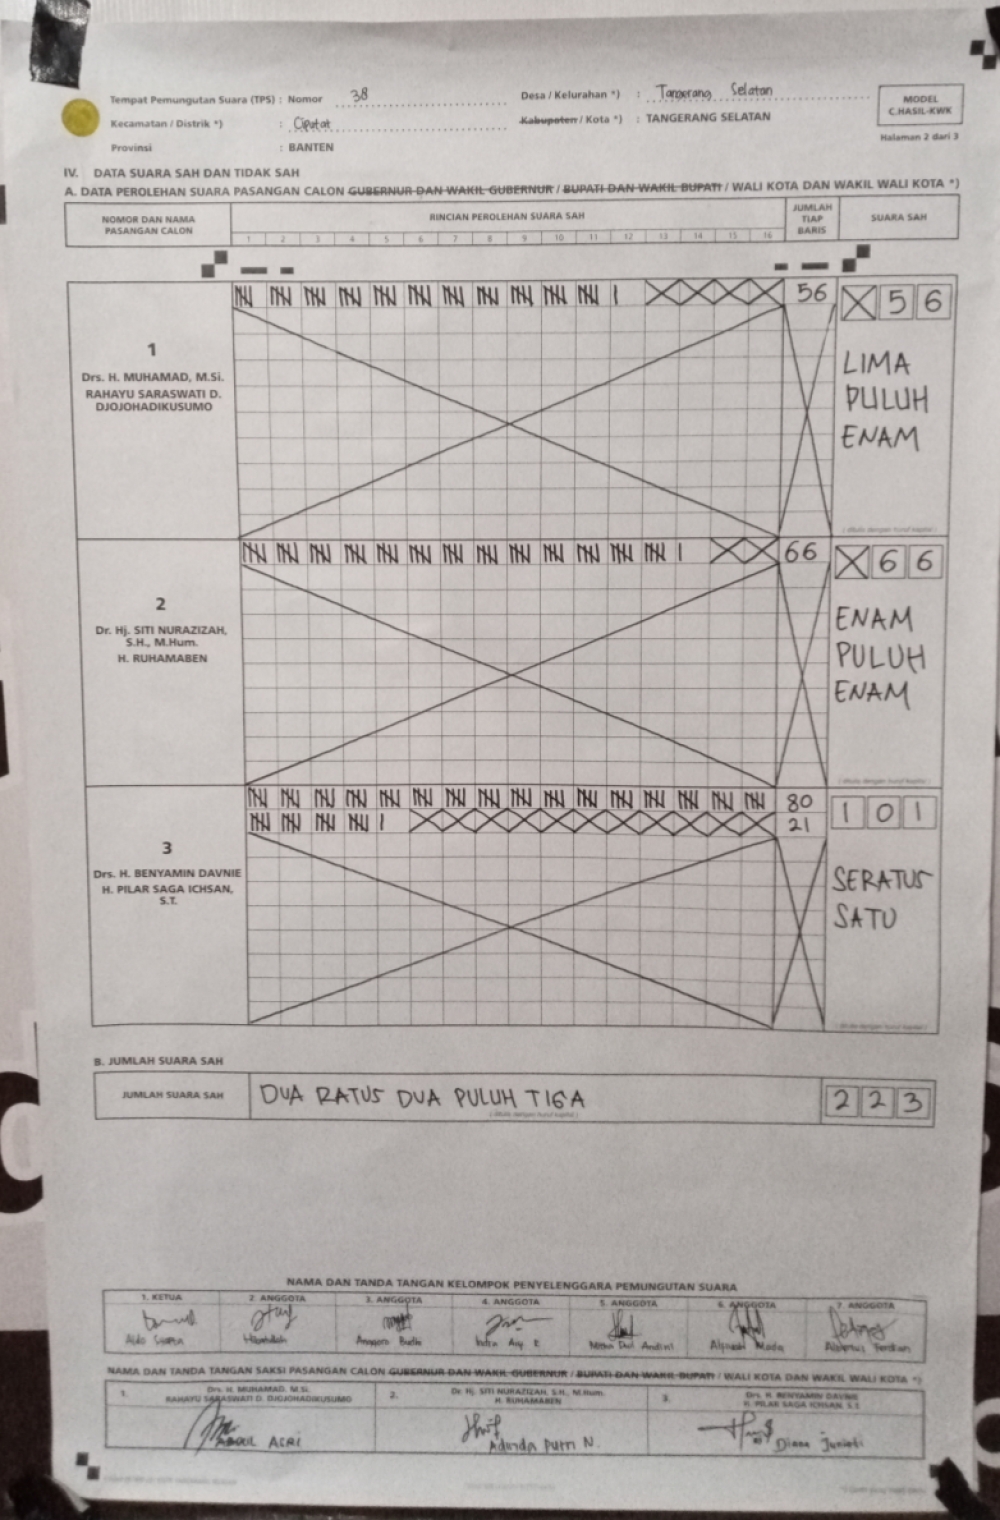 Tempat Pemungutan Suara (TPS) : Nomor 38
Desa / Kelurahan *) : Tangerang Selatan
Kecamatan / Distrik *) : Ciputat
Kabupaten / Kota *) : TANGERANG SELATAN
Provinsi : BANTEN
MODEL
C.HASIL-KWK
Halaman 2 dari 3
IV. DATA SUARA SAH DAN TIDAK SAH
A. DATA PEROLEHAN SUARA PASANGAN CALON GUBERNUR DAN WAKIL GUBERNUR / BUPATI DAN WAKIL BUPATI / WALI KOTA DAN WAKIL WALI KOTA *)
NOMOR DAN NAMA
PASANGAN CALON
RINCIAN PEROLEHAN SUARA SAH
1 2 3 4 5 6 7 8 9 10 11 12 13 14 15 16
JUMLAH
TIAP
BARIS
SUARA SAH
1
Drs. H. MUHAMAD, M.Si.
RAHAYU SARASWATI D.
DJOJOHADIKUSUMO
56
X 5 6
LIMA
PULUH
ENAM
( ditulis dengan huruf kapital )
2
Dr. Hj. SITI NURAZIZAH,
S.H., M.Hum.
H. RUHAMABEN
66
X 6 6
ENAM
PULUH
ENAM
( ditulis dengan huruf kapital )
3
Drs. H. BENYAMIN DAVNIE
H. PILAR SAGA ICHSAN,
S.T.
80
21
1 0 1
SERATUS
SATU
( ditulis dengan huruf kapital )
B. JUMLAH SUARA SAH
JUMLAH SUARA SAH
DUA RATUS DUA PULUH TIGA
( ditulis dengan huruf kapital )
2 2 3
NAMA DAN TANDA TANGAN KELOMPOK PENYELENGGARA PEMUNGUTAN SUARA
1. KETUA 2. ANGGOTA 3. ANGGOTA 4. ANGGOTA 5. ANGGOTA 6. ANGGOTA 7. ANGGOTA
NAMA DAN TANDA TANGAN SAKSI PASANGAN CALON GUBERNUR DAN WAKIL GUBERNUR / BUPATI DAN WAKIL BUPATI / WALI KOTA DAN WAKIL WALI KOTA *)
1. Drs. H. MUHAMAD, M.Si.
RAHAYU SARASWATI D. DJOJOHADIKUSUMO
2. Dr. Hj. SITI NURAZIZAH, S.H., M.Hum.
H. RUHAMABEN
3. Drs. H. BENYAMIN DAVNIE
H. PILAR SAGA ICHSAN, S.T.
Adinda Putri N.
Diana Juniati